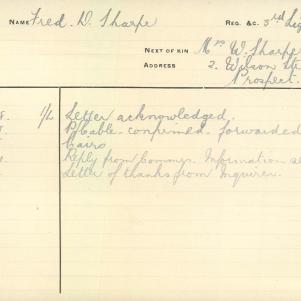 NAME Fred. D. Sharpe REG. &C. 3rd Lig
NEXT OF KIN Mrs W. Sharpe
ADDRESS 2. Wilson Str
Prospect.
8. 1/2 Letter acknowledged.
P/Cable confirmed. forwarded
Cairo
Reply from Commr. Information al
Letter of thanks from Inquirer.